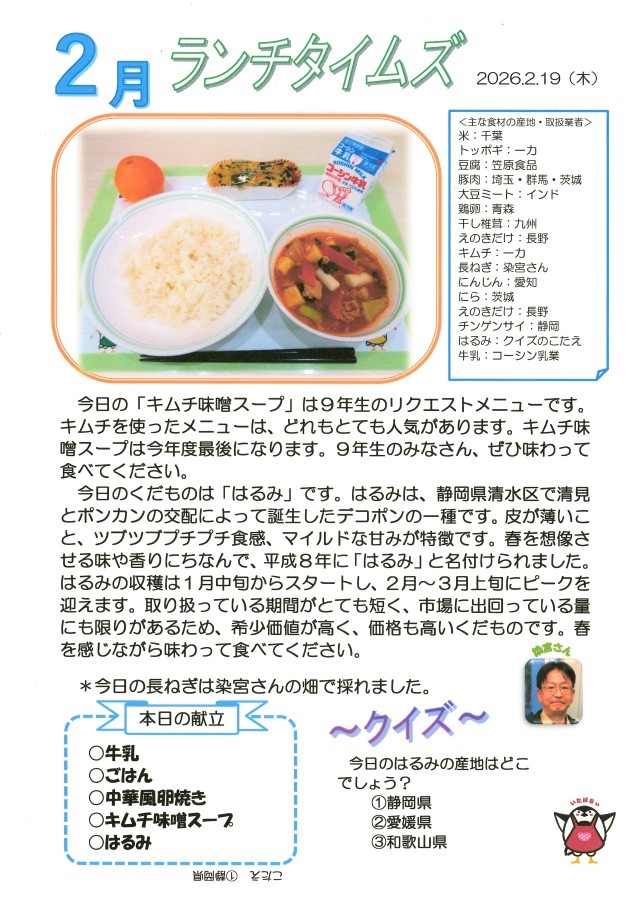 2月 ランチタイムズ 2026.2.19(木)
<主な食材の産地・取扱業者>
米:千葉
トッポギ:一力
豆腐:笠原食品
豚肉:埼玉・群馬・茨城
大豆ミート:インド
鶏卵:青森
干し椎茸:九州
えのきだけ:長野
キムチ:一力
長ねぎ:染宮さん
にんじん:愛知
にら:茨城
えのきだけ:長野
チンゲンサイ:静岡
はるみ:クイズのこたえ
牛乳:コーシン乳業
牛乳
コーシン牛乳
今日の「キムチ味噌スープ」は9年生のリクエストメニューです。
キムチを使ったメニューは、どれもとても人気があります。キムチ味
噌スープは今年度最後になります。9年生のみなさん、ぜひ味わって
食べてください。
今日のくだものは「はるみ」です。はるみは、静岡県清水区で清見
とポンカンの交配によって誕生したデコポンの一種です。皮が薄いこ
と、ツブツブプチプチ食感、マイルドな甘みが特徴です。春を想像さ
せる味や香りにちなんで、平成8年に「はるみ」と名付けられました。
はるみの収穫は1月中旬からスタートし、2月~3月上旬にピークを
迎えます。取り扱っている期間がとても短く、市場に出回っている量
にも限りがあるため、希少価値が高く、価格も高いくだものです。春
を感じながら味わって食べてください。
染宮さん
*今日の長ねぎは染宮さんの畑で採れました。
本日の献立
○牛乳
○ごはん
○中華風卵焼き
○キムチ味噌スープ
○はるみ
~クイズ~
今日のはるみの産地はどこ
でしょう?
①静岡県
②愛媛県
③和歌山県
こたえ ①静岡県